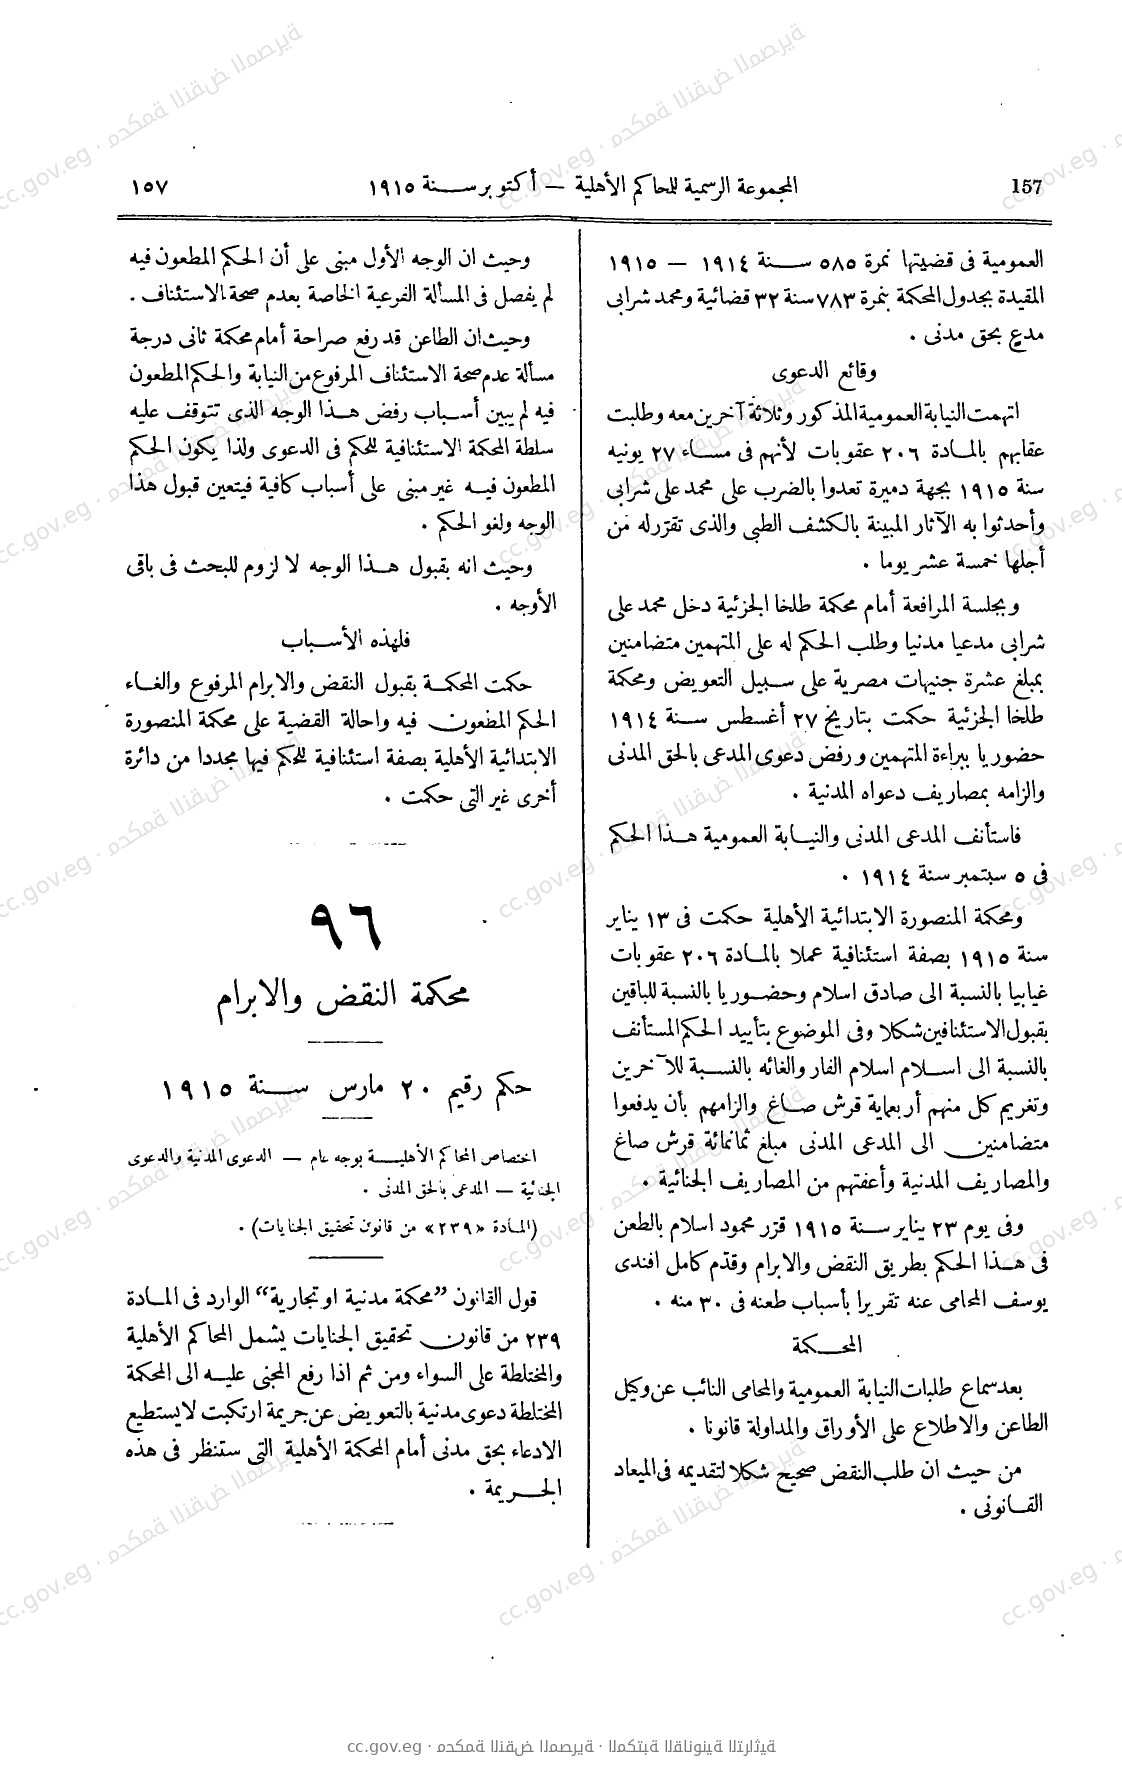 157
المجموعة الرسمية للحاكم الأهلية — أكتوبر سنة ١٩١٥
١٥٧
العمومية فى قضيتها نمرة ٥٨٥ سنة ١٩١٤ — ١٩١٥
المقيدة بجدول المحكمة بنمرة ٧٨٣ سنة ٣٢ قضائية ومحمد شرابى
مدعٍ بحق مدنى .
وقائع الدعوى
اتهمت النيابة العمومية المذكور وثلاثة آخرين معه وطلبت
عقابهم بالمادة ٢٠٦ عقوبات لأنهم فى مساء ٢٧ يونيه
سنة ١٩١٥ بجهة دميرة تعدوا بالضرب على محمد على شرابى
وأحدثوا به الآثار المبينة بالكشف الطبى والذى تقرّر له من
أجلها خمسة عشر يوما .
وبجلسة المرافعة أمام محكمة طلخا الجزئية دخل محمد على
شرابى مدعيا مدنيا وطلب الحكم له على المتهمين متضامنين
بمبلغ عشرة جنيهات مصرية على سبيل التعويض ومحكمة
طلخا الجزئية حكمت بتاريخ ٢٧ أغسطس سنة ١٩١٤
حضوريا ببراءة المتهمين ورفض دعوى المدعى بالحق المدنى
والزامه بمصاريف دعواه المدنية .
فاستأنف المدعى المدنى والنيابة العمومية هذا الحكم
فى ٥ سبتمبر سنة ١٩١٤ .
ومحكمة المنصورة الابتدائية الأهلية حكمت فى ١٣ يناير
سنة ١٩١٥ بصفة استئنافية عملا بالمادة ٢٠٦ عقوبات
غيابيا بالنسبة الى صادق اسلام وحضوريا بالنسبة للباقين
بقبول الاستئنافين شكلا وفى الموضوع بتأييد الحكم المستأنف
بالنسبة الى اسلام اسلام الفار والغائه بالنسبة للآخرين
وتغريم كل منهم أربعماية قرش صاغ والزامهم بأن يدفعوا
متضامنين الى المدعى المدنى مبلغ ثمانمائة قرش صاغ
والمصاريف المدنية وأعفتهم من المصاريف الجنائية .
وفى يوم ٢٣ يناير سنة ١٩١٥ قرّر محمود اسلام بالطعن
فى هذا الحكم بطريق النقض والابرام وقدّم كامل افندى
يوسف المحامى عنه تقريرا بأسباب طعنه فى ٣٠ منه .
المحكمة
بعد سماع طلبات النيابة العمومية والمحامى النائب عن وكيل
الطاعن والاطلاع على الأوراق والمداولة قانونا .
من حيث ان طلب النقض صحيح شكلا لتقديمه فى الميعاد
القانونى .
وحيث ان الوجه الأول مبنى على أن الحكم المطعون فيه
لم يفصل فى المسألة الفرعية الخاصة بعدم صحة الاستئناف .
وحيث ان الطاعن قد رفع صراحة أمام محكمة ثانى درجة
مسألة عدم صحة الاستئناف المرفوع من النيابة والحكم المطعون
فيه لم يبين أسباب رفض هذا الوجه الذى تتوقف عليه
سلطة المحكمة الاستئنافية للحكم فى الدعوى ولذا يكون الحكم
المطعون فيه غير مبنى على أسباب كافية فيتعين قبول هذا
الوجه ولغو الحكم .
وحيث انه بقبول هذا الوجه لا لزوم للبحث فى باقى
الأوجه .
فلهذه الأسباب
حكمت المحكمة بقبول النقض والابرام المرفوع والغاء
الحكم المطعون فيه واحالة القضية على محكمة المنصورة
الابتدائية الأهلية بصفة استئنافية للحكم فيها مجددا من دائرة
أخرى غير التى حكمت .
٩٦
محكمة النقض والابرام
حكم رقيم ٢٠ مارس سنة ١٩١٥
اختصاص المحاكم الأهلية بوجه عام — الدعوى المدنية والدعوى
الجنائية — المدعى بالحق المدنى .
(المادة «٢٣٩» من قانون تحقيق الجنايات) .
قول القانون ”محكمة مدنية او تجارية“ الوارد فى المادة
٢٣٩ من قانون تحقيق الجنايات يشمل المحاكم الأهلية
والمختلطة على السواء ومن ثم اذا رفع المجنى عليه الى المحكمة
المختلطة دعوى مدنية بالتعويض عن جريمة ارتكبت لا يستطيع
الادعاء بحق مدنى أمام المحكمة الأهلية التى ستنظر فى هذه
الجريمة .
cc.gov.eg · محكمة النقض المصرية · المكتبة القانونية التراثية